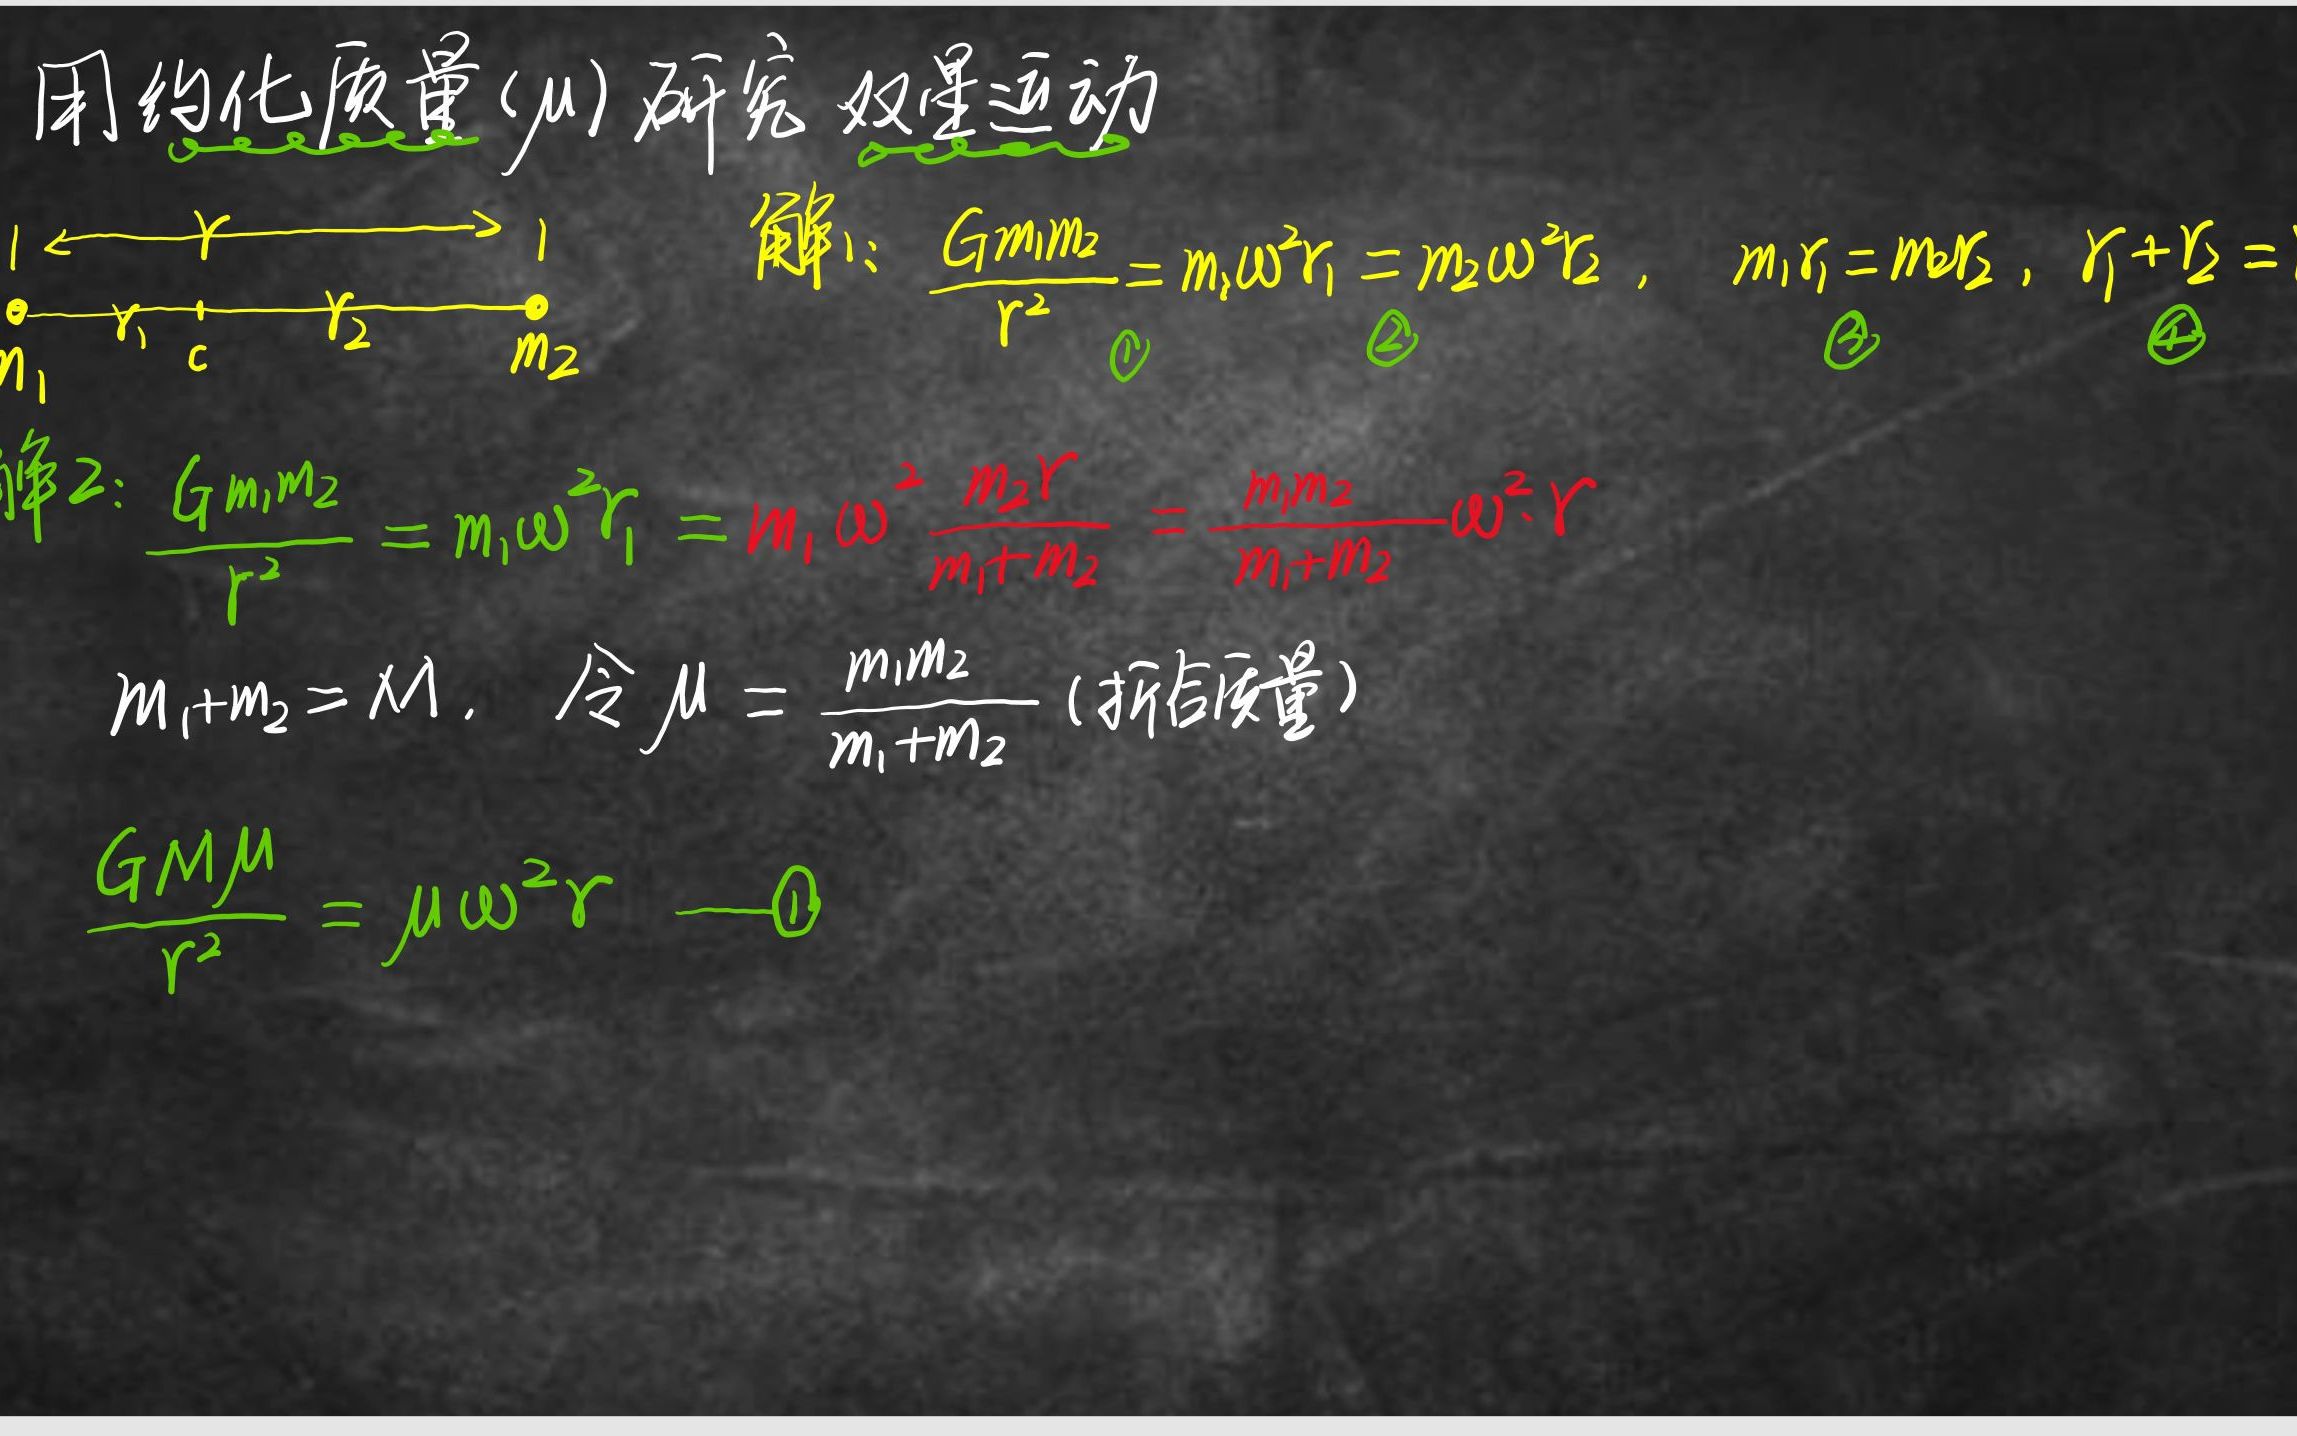 用约化质量(μ)研究双星运动
1 r 1
r₁ c r₂
m₁ m₂
解1: Gm₁m₂/r² = m₁ω²r₁ = m₂ω²r₂, m₁r₁ = m₂r₂, r₁+r₂ =
① ② ③ ④
解2: Gm₁m₂/r² = m₁ω²r₁ = m₁ω² m₂r/(m₁+m₂) = m₁m₂/(m₁+m₂) ω²·r
m₁+m₂ = M. 令μ = m₁m₂/(m₁+m₂) (折合质量)
GMμ/r² = μω²r —①